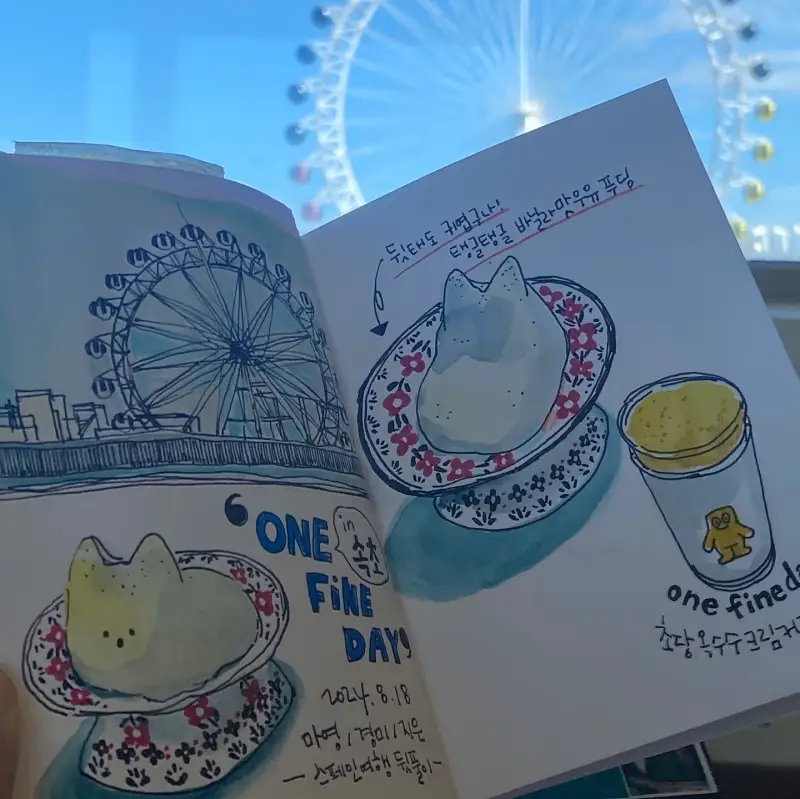 'ONE
in 속초
FiNE
DAY'
2024.8.18
마영/경미/지은
– 스페인여행 뒷풀이 –
뒷태도 귀엽구나!
탱글탱글 바닐라맛우유 푸딩
one fine da
초당옥수수크림커